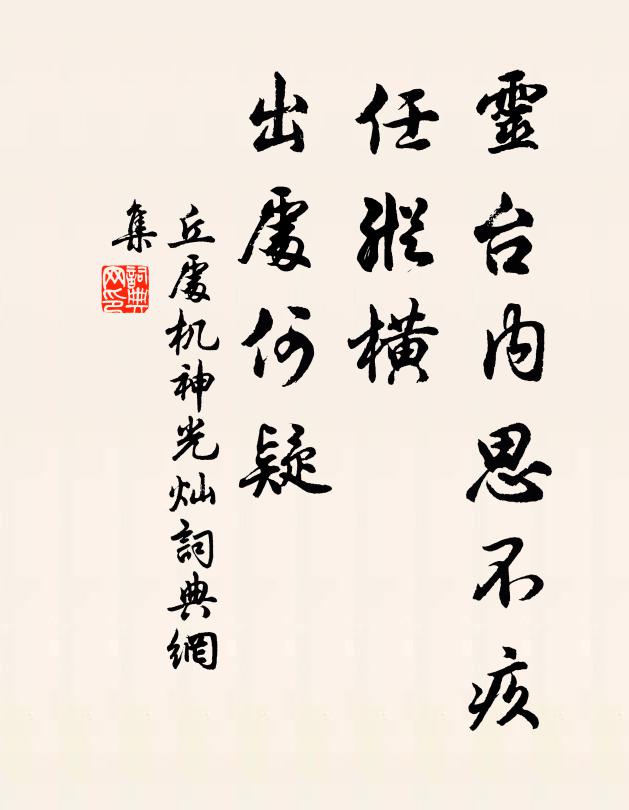 靈台内思不疚
任縱橫
出處何疑
丘處机神光灿詞典網
集
詞典網印